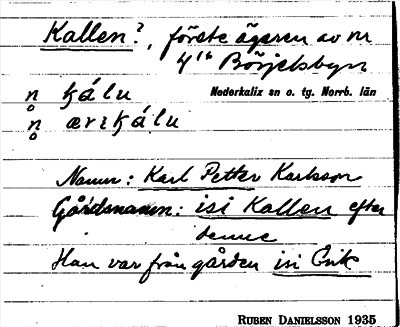 Kallen?, förste ägaren av nr
4¹⁶ Börjelsbyn
Nederkalix sn o. tg. Norrb. län
Namn: Karl Petter Karlsson
Gårdsnamn: isi Kallen efter
denne
Han var från gården isi Erik
RUBEN DANIELSSON 1935